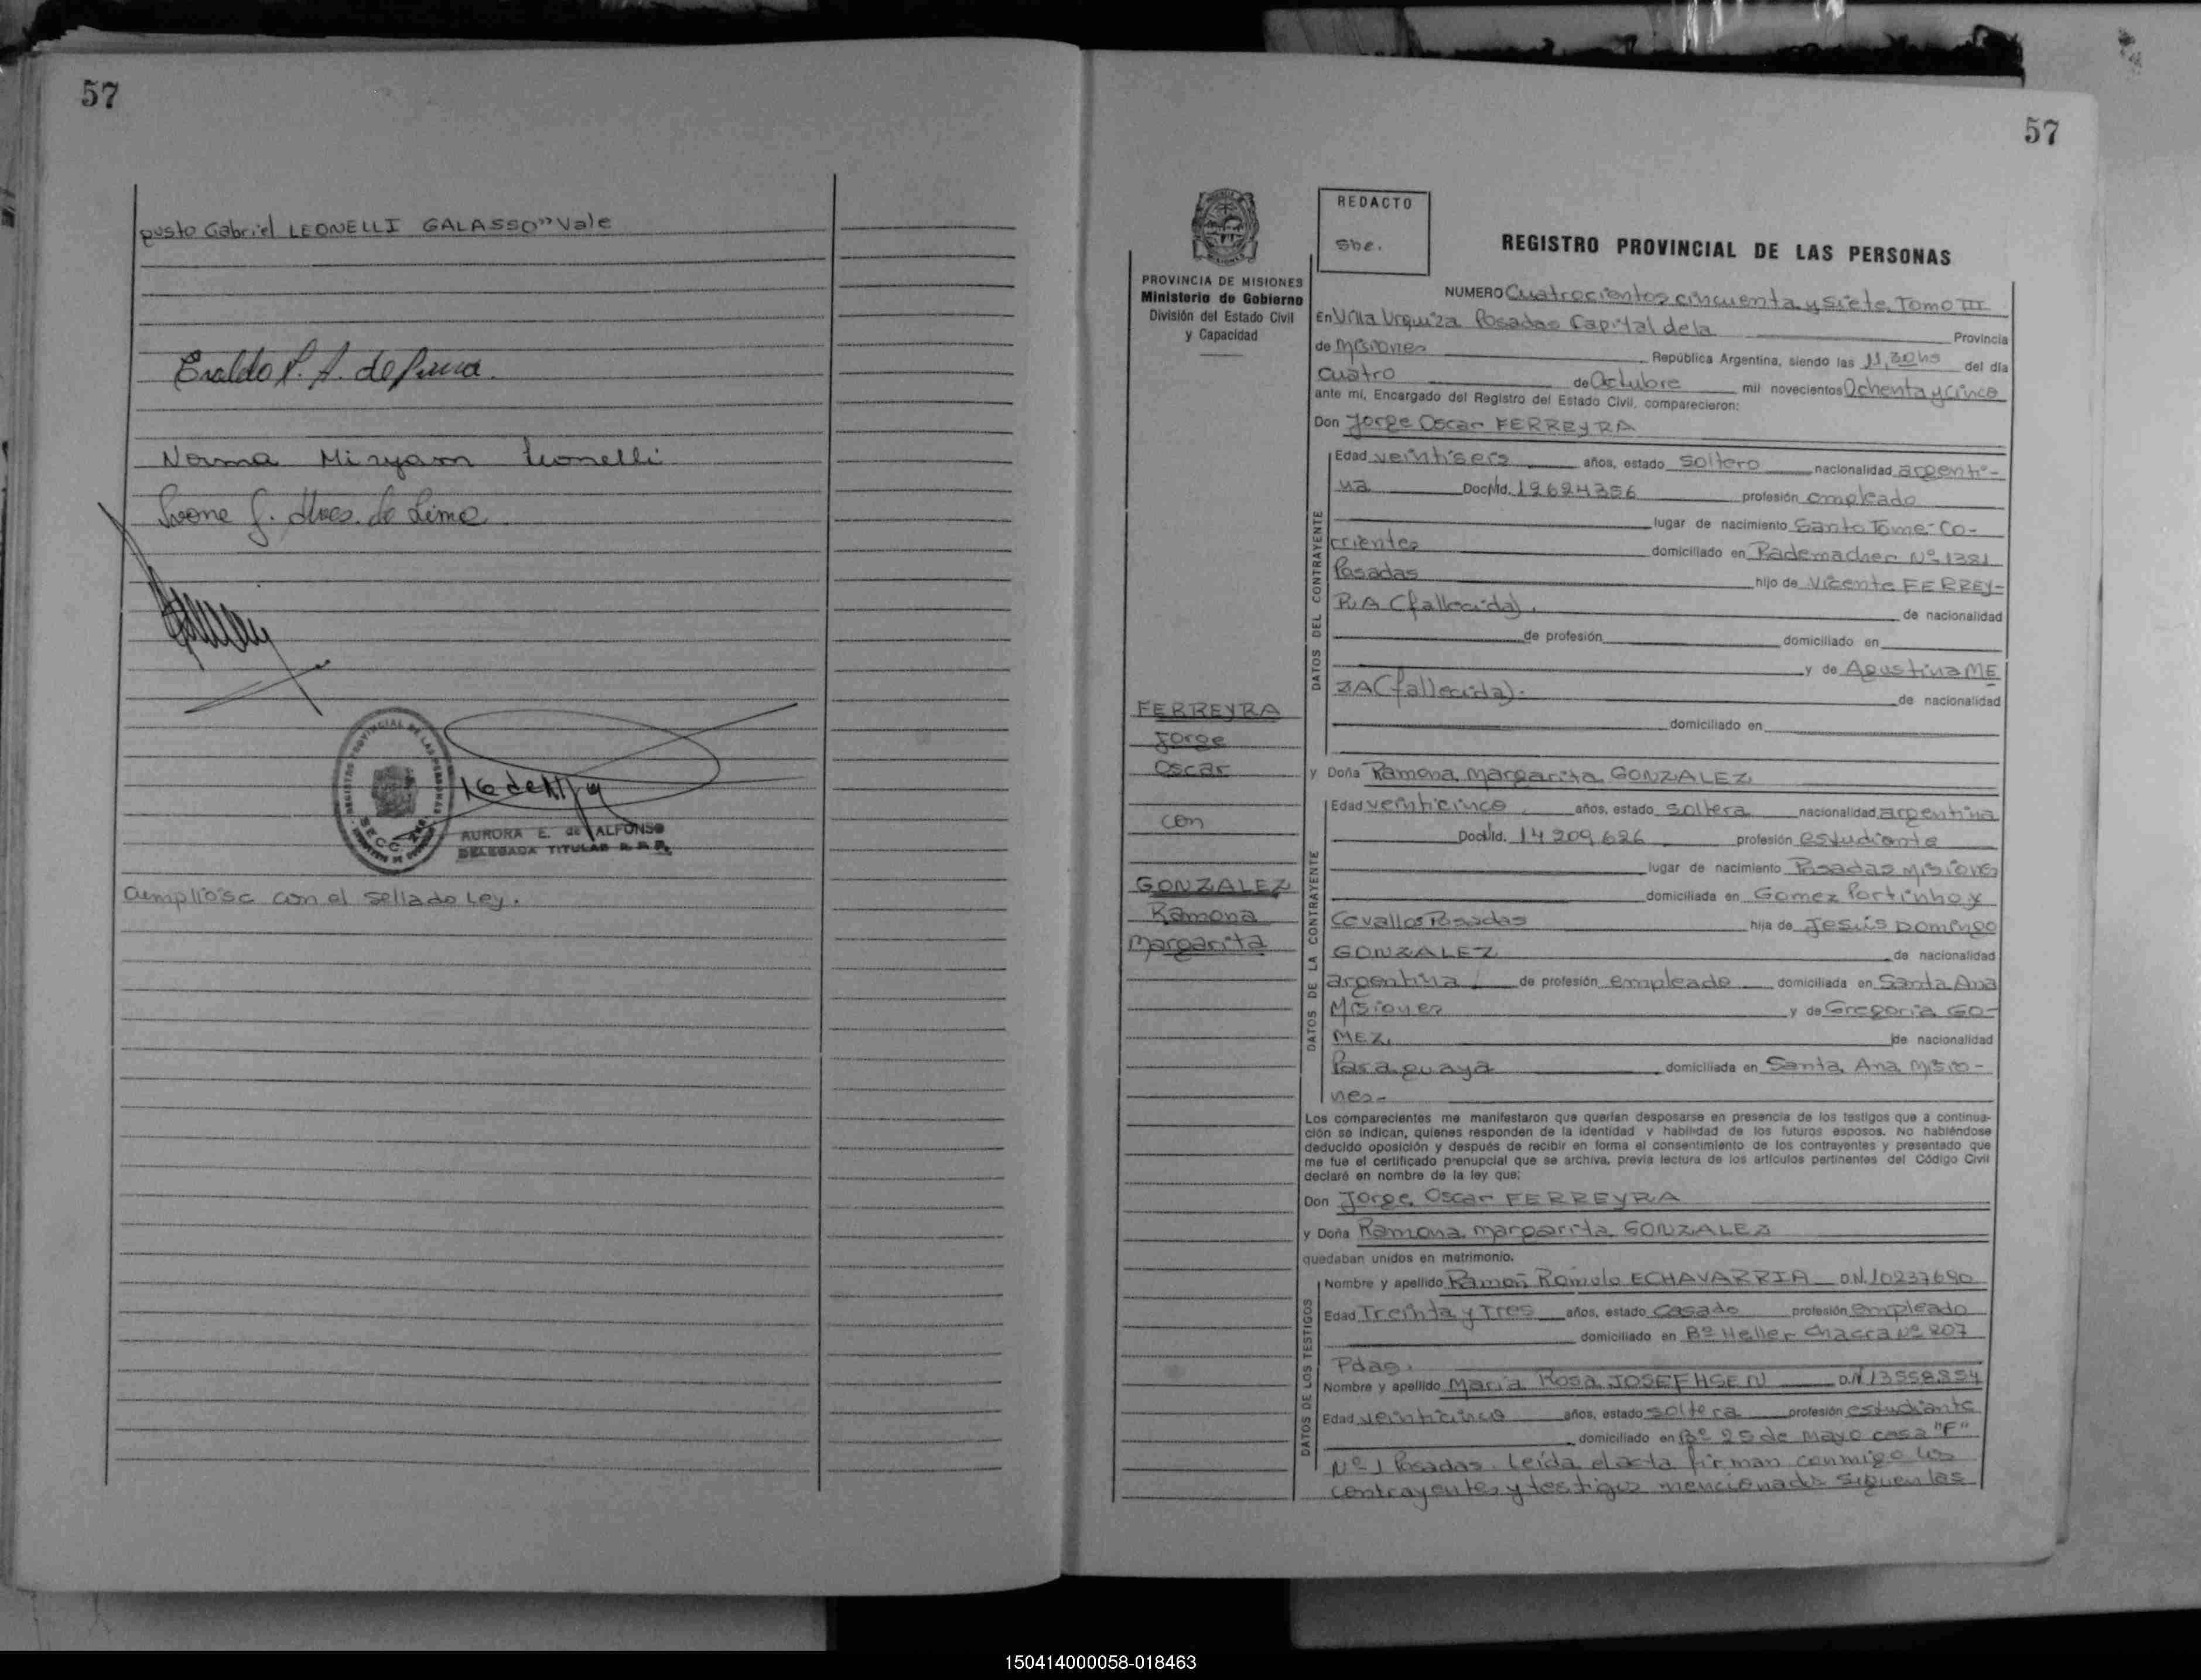 57
gusto Gabriel LEONELLI GALASSO" Vale
Norma Miryam Leonelli
Ivone J. Alves. de Lima
REGISTRO PROVINCIAL DE LAS PERSONAS
AURORA E. de ALFONSO
DELEGADA TITULAR R. P. P.
Cumpliose con el sellado Ley.
57
REDACTO
Sbe.
PROVINCIA DE MISIONES
Ministerio de Gobierno
División del Estado Civil
y Capacidad
FERREYRA
Jorge
Oscar
con
GONZALEZ
Ramona
Margarita
REGISTRO PROVINCIAL DE LAS PERSONAS
NUMERO Cuatrocientos cincuenta y siete Tomo III
En Villa Urquiza Posadas Capital de la Provincia
de Misiones República Argentina, siendo las 11,30hs del día
cuatro de Octubre mil novecientos Ochenta y cinco
ante mí, Encargado del Registro del Estado Civil, comparecieron:
Don Jorge Oscar FERREYRA
DATOS DEL CONTRAYENTE
Edad veintiseis años, estado soltero nacionalidad argenti-
na Doc. Id. 12624356 profesión empleado
lugar de nacimiento Santo Tome-Co-
rrientes domiciliado en Rademacher Nº 1381
Posadas hijo de Vicente FERREY-
RA (fallecida). de nacionalidad
de profesión domiciliado en
y de Agustina ME
ZA (fallecida). de nacionalidad
domiciliado en
y Doña Ramona Margarita GONZALEZ
DATOS DE LA CONTRAYENTE
Edad veinticinco años, estado soltera nacionalidad argentina
Doc. Id. 14 209 626 profesión estudiante
lugar de nacimiento Posadas Misiones
domiciliada en Gomez Portinho y
Cevallos Posadas hija de Jesús Domingo
GONZALEZ de nacionalidad
argentina de profesión empleado domiciliada en Santa Ana
Misiones y de Gregoria GO-
MEZ. de nacionalidad
Paraguaya domiciliada en Santa Ana Misio-
nes-
Los comparecientes me manifestaron que querían desposarse en presencia de los testigos que a continua-
ción se indican, quienes responden de la identidad y habilidad de los futuros esposos. No habiéndose
deducido oposición y después de recibir en forma el consentimiento de los contrayentes y presentado que
me fue el certificado prenupcial que se archiva, previa lectura de los artículos pertinentes del Código Civil
declaré en nombre de la ley que:
Don Jorge Oscar FERREYRA
y Doña Ramona Margarita GONZALEZ
quedaban unidos en matrimonio.
DATOS DE LOS TESTIGOS
Nombre y apellido Ramon Romulo ECHAVARRIA D.N. 10237690
Edad Treinta y Tres años, estado Casado profesión empleado
domiciliado en Bº Heller Chacra Nº 207
Pdas.
Nombre y apellido Maria Rosa JOSEFHSEN D.N 13558854
Edad veinticinco años, estado soltera profesión estudiante
domiciliado en Bº 25 de Mayo casa "F"
Nº 1 Posadas. Leída el acta firman conmigo los
contrayentes y testigos mencionados siguen las
150414000058-018463